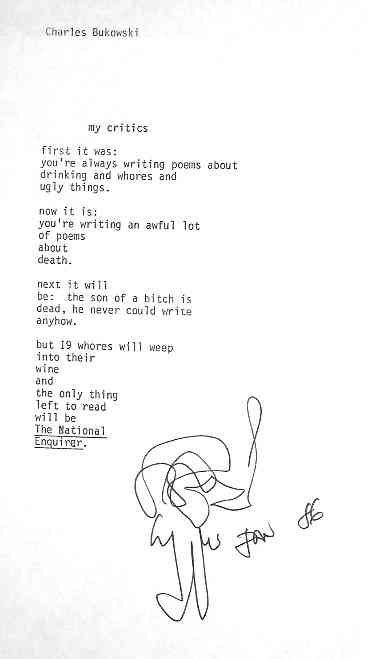 Charles Bukowski
my critics
first it was:
you're always writing poems about
drinking and whores and
ugly things.
now it is:
you're writing an awful lot
of poems
about
death.
next it will
be: the son of a bitch is
dead, he never could write
anyhow.
but 19 whores will weep
into their
wine
and
the only thing
left to read
will be
The National
Enquirer.
JAN 86